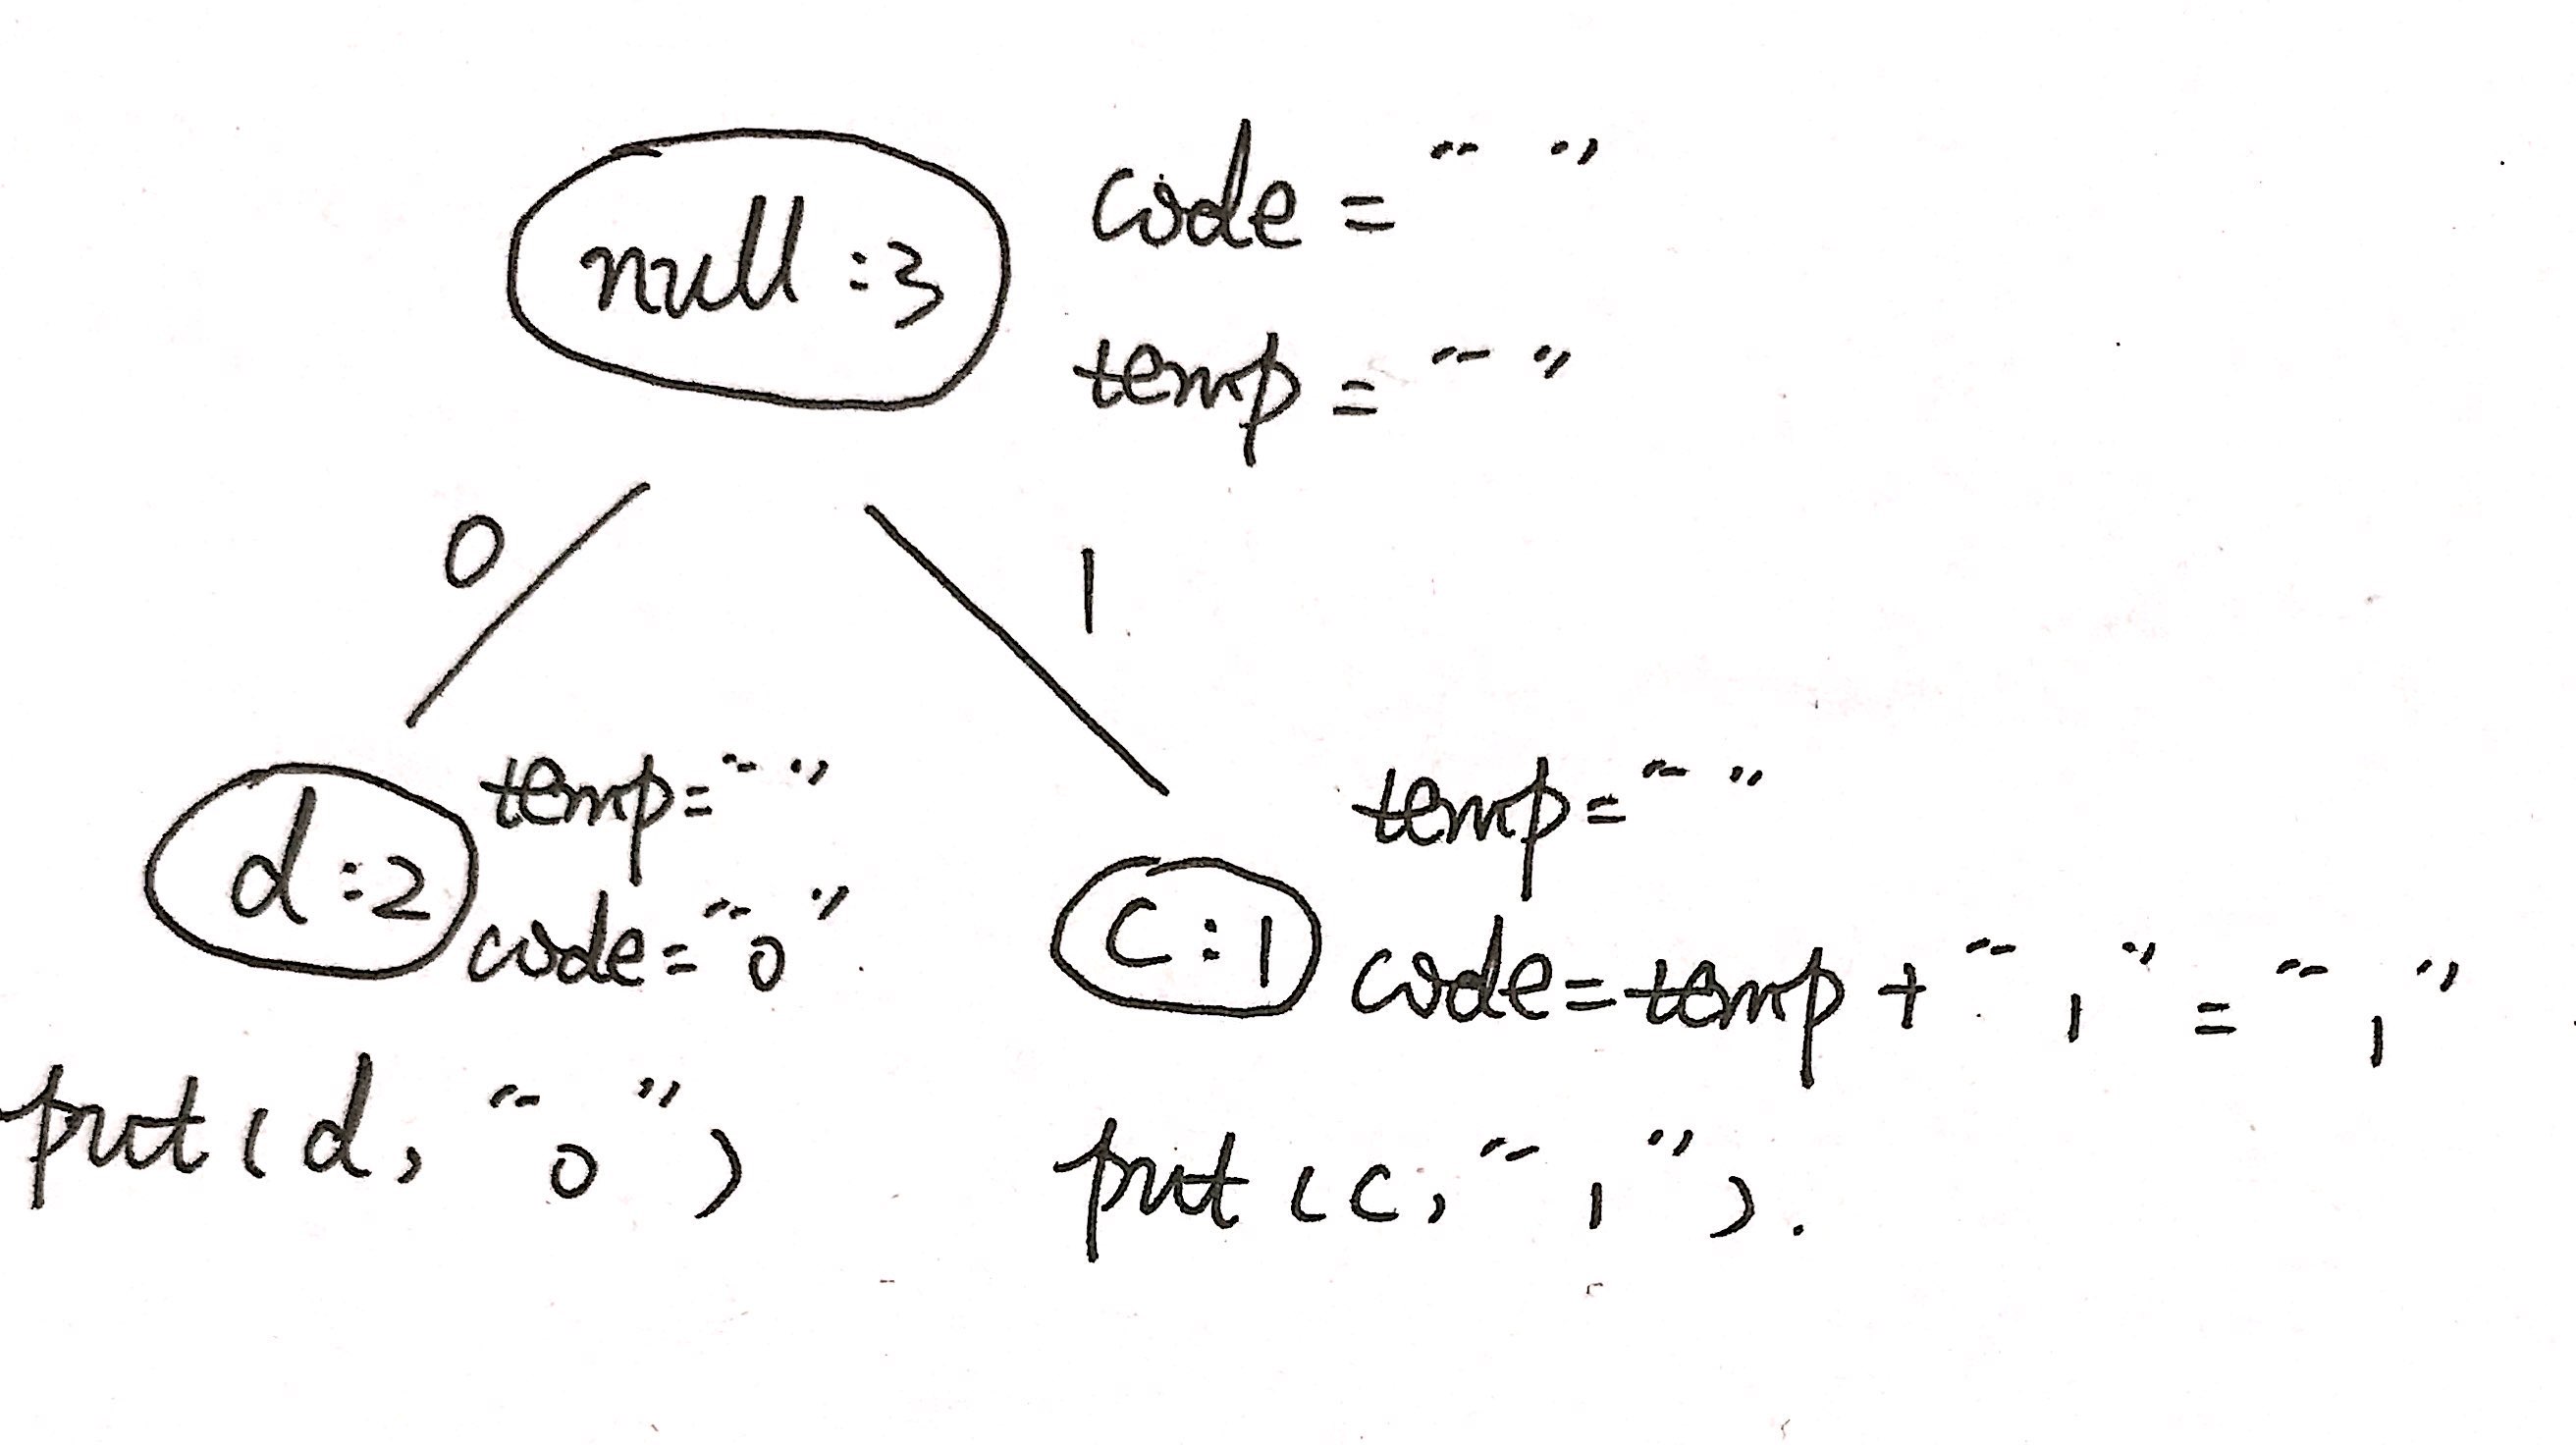 null:3
code = " "
temp = " "
0
1
d:2
temp=" "
code="0"
put(d, "0")
temp=" "
c:1
code=temp+"1"="1"
put(c,"1").